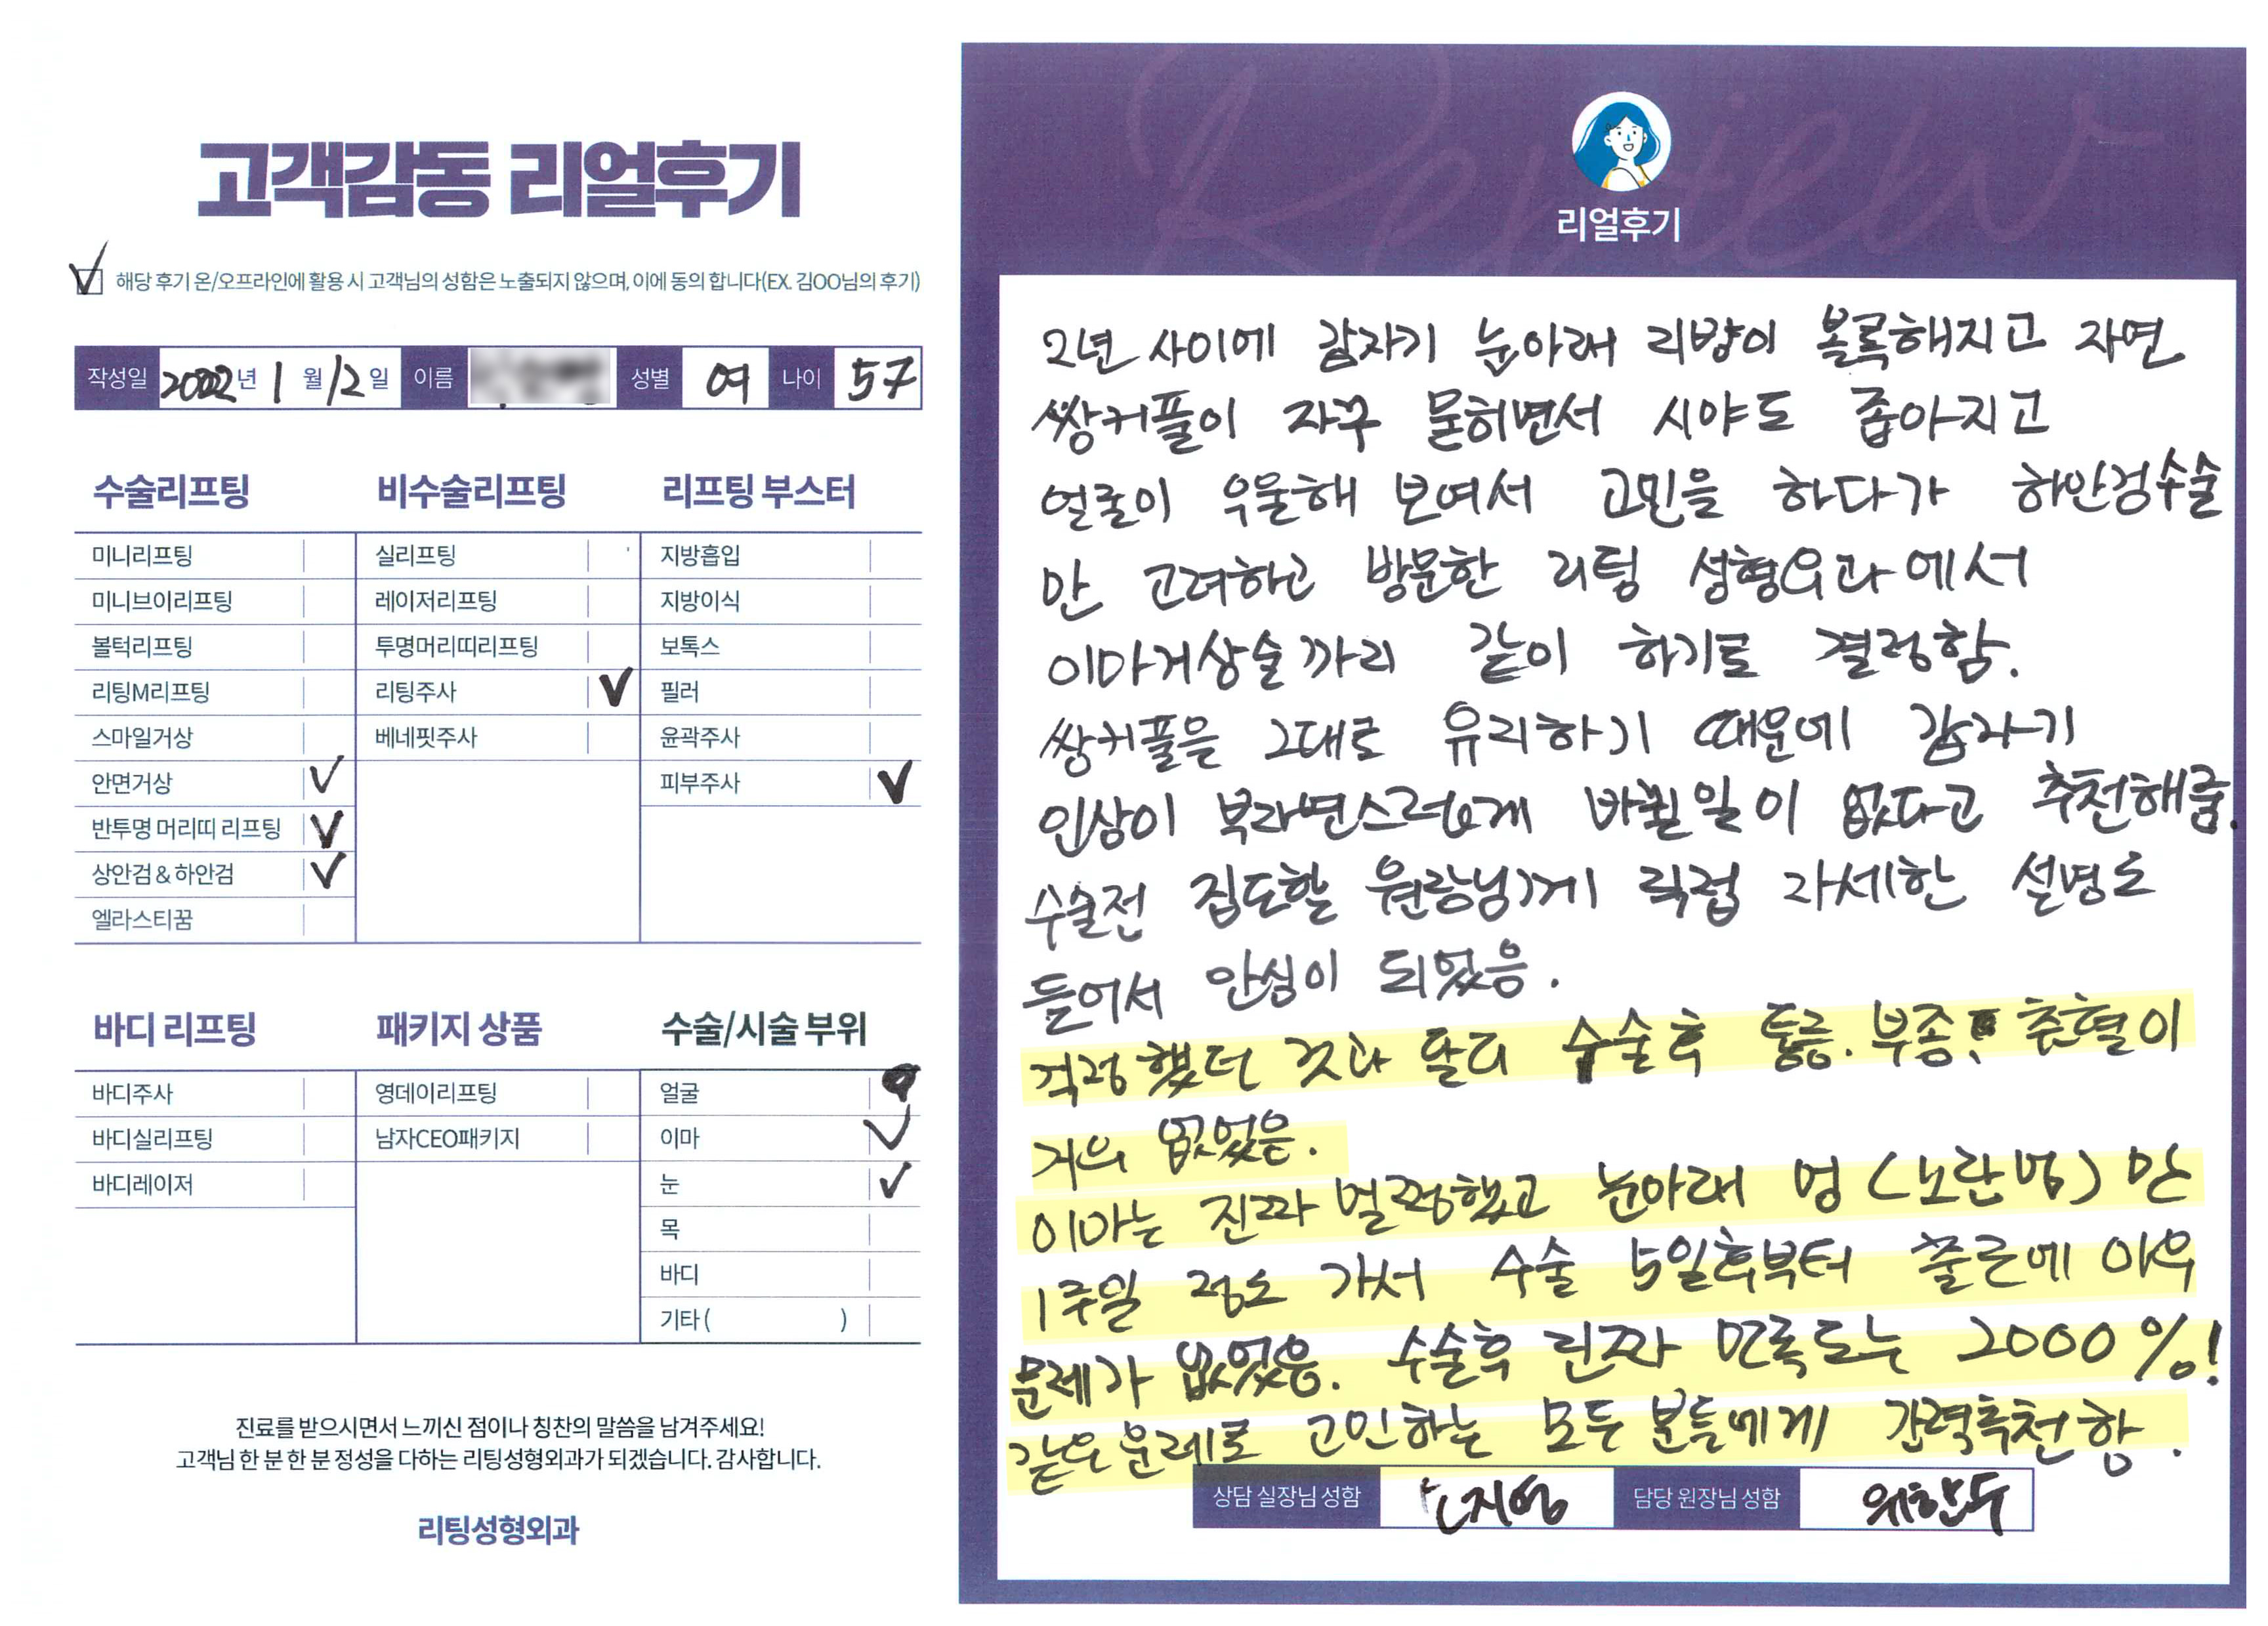 고객감동 리얼후기
✓ 해당 후기 온/오프라인에 활용 시 고객님의 성함은 노출되지 않으며, 이에 동의 합니다(EX. 김OO님의 후기)
작성일 2022년 1월 12일 이름 성별 여 나이 57
수술리프팅
미니리프팅
미니브이리프팅
볼턱리프팅
리팅M리프팅
스마일거상
안면거상 ✓
반투명 머리띠 리프팅 ✓
상안검 & 하안검 ✓
엘라스티꿈
비수술리프팅
실리프팅
레이저리프팅
투명머리띠리프팅
리팅주사 ✓
베네핏주사
리프팅 부스터
지방흡입
지방이식
보톡스
필러
윤곽주사
피부주사 ✓
바디 리프팅
바디주사
바디실리프팅
바디레이저
패키지 상품
영데이리프팅
남자CEO패키지
수술/시술 부위
얼굴
이마 ✓
눈 ✓
목
바디
기타 ( )
진료를 받으시면서 느끼신 점이나 칭찬의 말씀을 남겨주세요!
고객님 한 분 한 분 정성을 다하는 리팅성형외과가 되겠습니다. 감사합니다.
리팅성형외과
Review
리얼후기
2년 사이에 갑자기 눈아래 지방이 볼록해지고 자연
쌍커플이 자꾸 묻히면서 시야도 좁아지고
얼굴이 우울해 보여서 고민을 하다가 하안검수술
만 고려하고 방문한 리팅 성형외과에서
이마거상술까지 같이 하기로 결정함.
쌍커플을 그대로 유지하기 때문에 갑자기
인상이 부자연스럽게 바뀔일이 없다고 추천해줌.
수술전 집도할 원장님께 직접 자세한 설명도
들어서 안심이 되었음.
걱정했던 것과 달리 수술후 통증. 부종, 출혈이
거의 없었음.
이마는 진짜 멀쩡했고 눈아래 멍 (노란멍) 만
1주일 정도 가서 수술 5일후부터 출근에 아무
문제가 없었음. 수술후 진짜 만족도는 2000%!
같은 문제로 고민하는 모두 분들에게 강력추천함.
상담 실장님 성함 지영 담당 원장님 성함 위한두